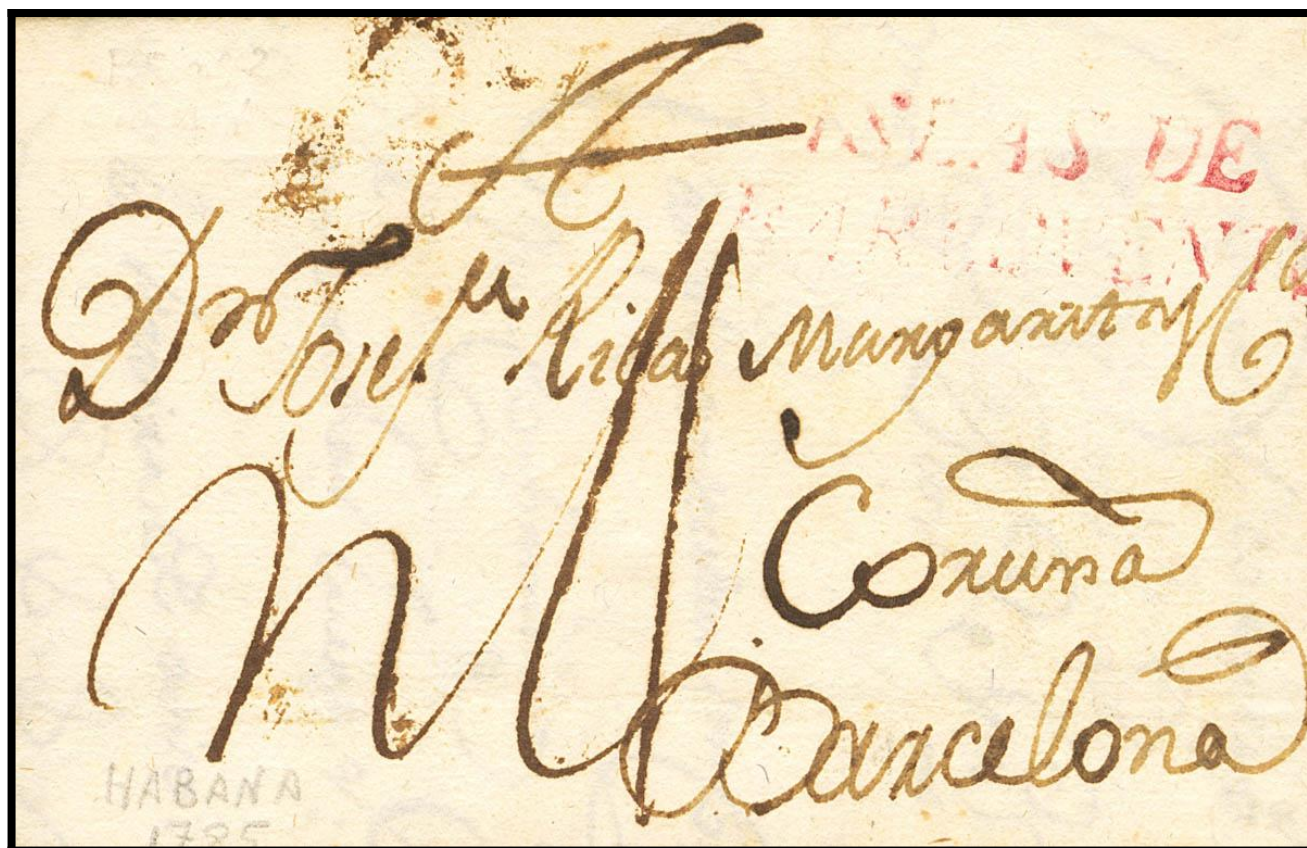 A
ISLAS DE
BARLOVENTO
Dn Josef Ribas Margarit y Ca
Coruña
Barcelona
HABANA
1785